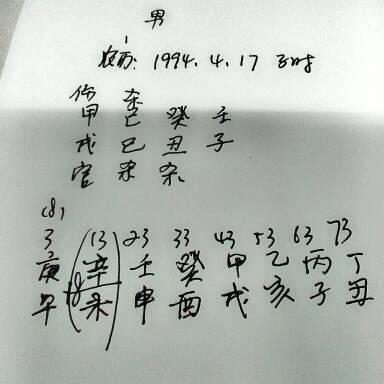 男
农历: 1994. 4. 17 子时
伤 杀
甲 己 癸 壬
戌 巳 丑 子
官 杀 杀
(8)
3 (13) 23 33 43 53 63 73
庚 辛 壬 癸 甲 乙 丙 丁
午 未 申 酉 戌 亥 子 丑